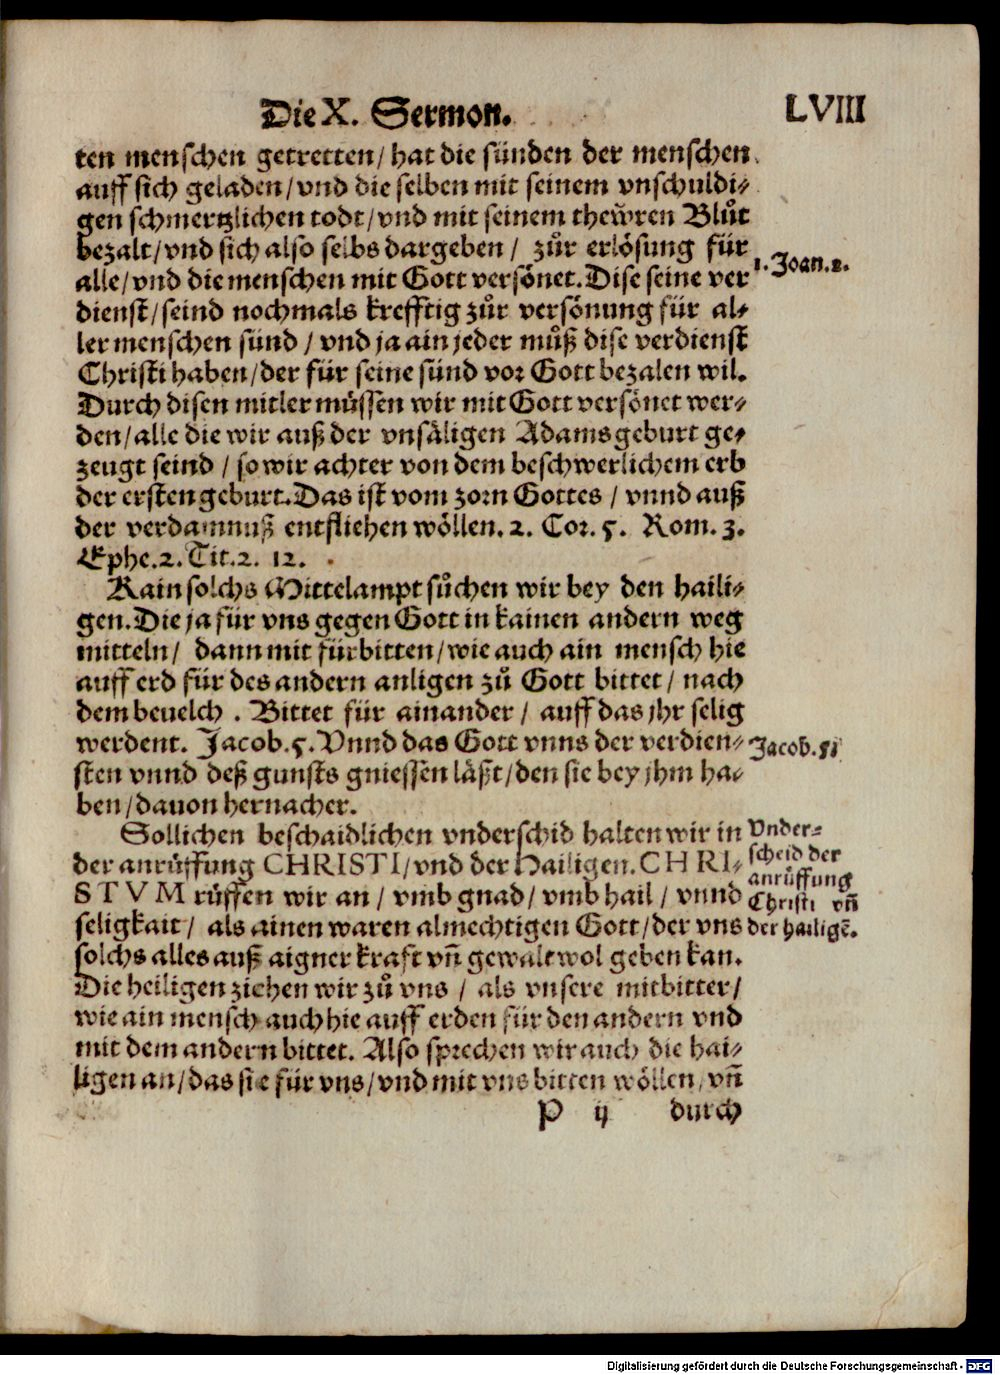 Die X. Sermon. LVIII
ten menschen getretten/ hat die sünden der menschen
auff sich geladen/ vnd die selben mit seinem vnschuldi-
gen schmertzlichen todt/ vnd mit seinem thewͤren Blůt
bezalt/ vnd sich also selbs dargeben/ zůr erlösung für
alle/ vnd die menschen mit Gott versönet. Dise seine ver
1. Joan. 2.
dienst/ seind nochmals krefftig zůr versönung für al-
ler menschen sünd/ vnd ja ain jeder můß dise verdienst
Christi haben/ der für seine sünd vor Gott bezalen wil.
Durch disen mitler müssen wir mit Gott versönet wer-
den/ alle die wir auß der vnsäligen Adams geburt ge-
zeugt seind/ so wir achter von dem beschwerlichem erb
der ersten geburt. Das ist vom zorn Gottes/ vnnd auß
der verdamnuß entfliehen wöllen. 2. Cor. 5. Rom. 3.
Ephe. 2. Tit. 2. 12.
Kain solchs Mittelampt sůchen wir bey den haili-
gen. Die ja für vns gegen Gott in kainen andern weg
mitteln/ dann mit fürbitten/ wie auch ain mensch hie
auff erd für des andern anligen zů Gott bittet/ nach
dem beuelch. Bittet für ainander/ auff das jhr selig
werdent. Jacob. 5. Vnnd das Gott vnns der verdien-
Jacob. 5.
sten vnnd deß gunsts gniessen läßt/ den sie bey jhm ha-
ben/ dauon hernacher.
Sollichen beschaidlichen vnderschid halten wir in
der anrüffung CHRISTI/ vnd der Hailigen. CHRI-
STVM rüffen wir an/ vmb gnad/ vmb hail/ vnnd
seligkait/ als ainen waren almechtigen Gott/ der vns
Vnder-
scheid der
anrüffung
Christi vñ
der hailigē.
solchs alles auß aigner kraft vñ gewalt wol geben kan.
Die heiligen ziehen wir zů vns/ als vnsere mitbitter/
wie ain mensch auch hie auff erden für den andern vnd
mit dem andern bittet. Also sprechen wir auch die hai-
ligen an/ das sie für vns/ vnd mit vns bitten wöllen/ vñ
P ij durch
Digitalisierung gefördert durch die Deutsche Forschungsgemeinschaft - DFG